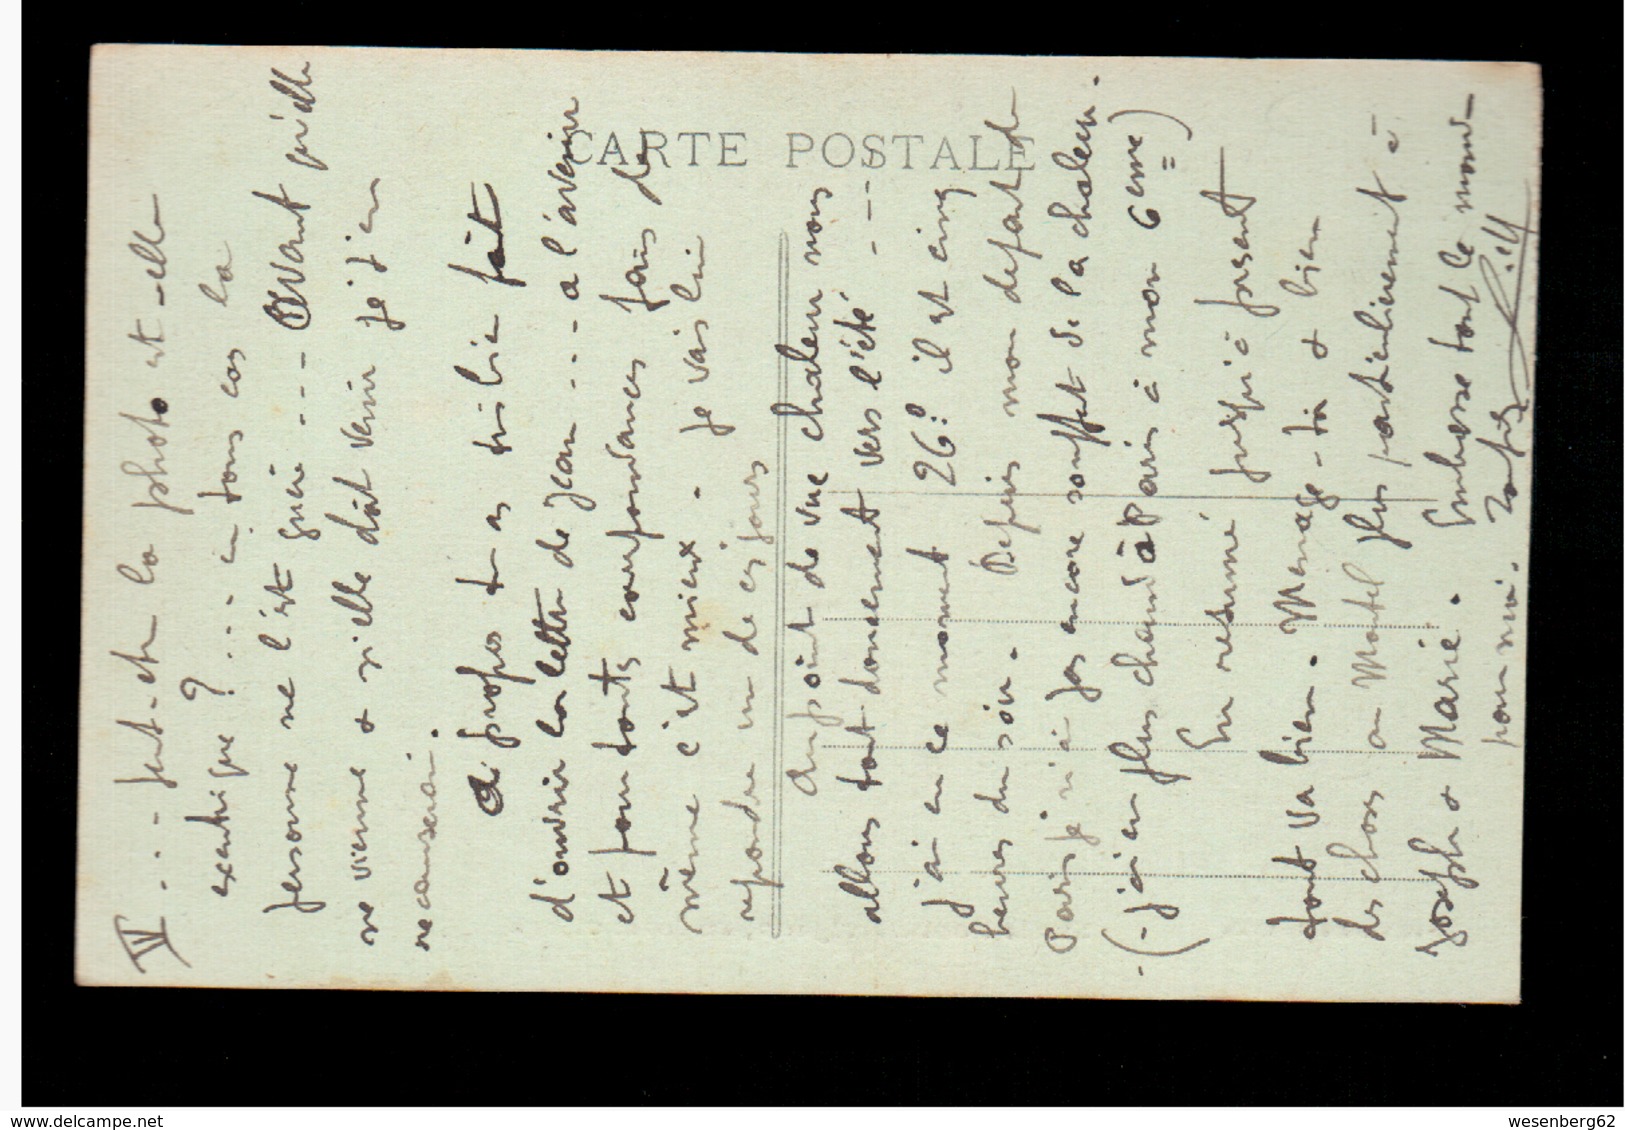 IV
... peut-être la photo est-elle
exentrique ? ... en tous cas la
personne ne l'est guère ... Avant qu'elle
ne vienne & si elle doit venir je t'en
recauserai.
A propos tu as très bien fait
d'ouvrir la lettre de Jean ... à l'avenir
et pour toutes correspondances fais de
même c'est mieux. Je vais lui
repondre un de ces jours
CARTE POSTALE
Au point de vue chaleur nous
allons tout doucement vers l'été ...
j'ai en ce moment 26° : il est cinq
heures du soir. Depuis mon depart de
Paris je n'ai pas encore souffert de la chaleur.
(- j'ai eu plus chaud à Paris à mon 6eme)
En resumé jusqu'à present
tout va bien. Menage-toi & bien
des choses au Montel plus particulierement à
Joseph & Marie. Embrasse tout le monde
pour moi.